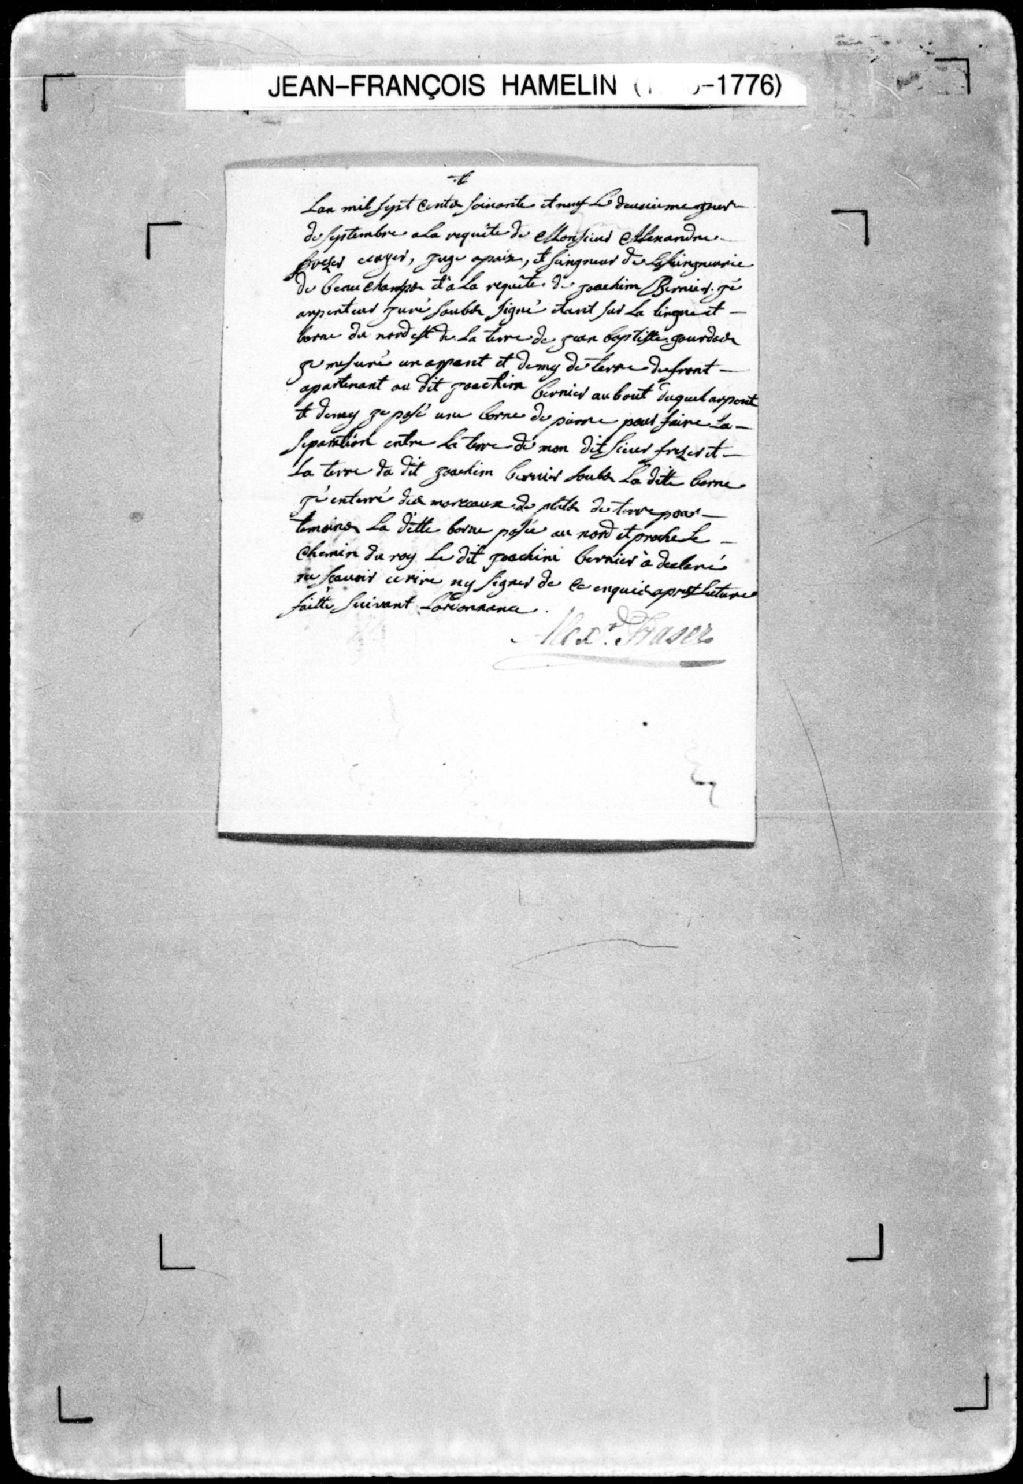 JEAN-FRANÇOIS HAMELIN ( -1776)
Lan mil sept cents soixante et neuf Le deuxieme jour
de septembre a la requête de Monsieur Alexandre
frezer ecuyer, juge apaix, et seingneur de La seingneurie
de beauchamps et à La requête de joachim Bernier. jé
arpenteur juré soubs signé étant sur La lingne et
borne du nordest de La terre de jean baptiste gourdeau
je mesuré un arpent et demy de terre de front
apartenant au dit joachim bernier au bout duquel arpent
et demy je posé une borne de pierre pour faire La
separation entre La terre de mon dit sieur frezer et
La terre du dit joachim bernier soubs La ditte borne
jé enterré des morceaux de plats de terre pour
temoins La ditte borne posée au nord et proche le
chemin du roy Le dit joachim bernier à declaré
ne scavoir ecrire ny signer de ce enquis apres Lecture
faitte suivant Lordonnance.
Alexr. Fraser